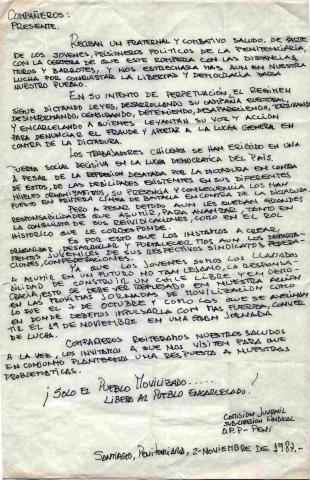 COMPAÑEROS:
PRESENTE.
RECIBAN UN FRATERNAL Y COMBATIVO SALUDO, DE PARTE
DE LOS JOVENES, PRISIONEROS POLITICOS DE LA PENITENCIARIA,
CON LA CERTEZA DE QUE ESTE ROMPERA CON LAS DISTANCIAS,
MUROS Y BARROTES, Y NOS ESTRECHARA MAS AUN EN NUESTRA
LUCHA POR CONQUISTAR LA LIBERTAD Y DEMOCRACIA PARA
NUESTRO PUEBLO.
EN SU INTENTO DE PERPETUACION, EL REGIMEN
SIGUE DICTANDO LEYES, DESARROLLANDO SU CAMPAÑA ELECTORAL,
DESINFORMANDO, CENSURANDO, DETENIENDO, DESAPARECIENDO,
Y ENCARCELANDO A QUIENES LEVANTAN SU VOZ Y ACCION
PARA DENUNCIAR EL FRAUDE Y APORTAR A LA LUCHA GENERAL EN
CONTRA DE LA DICTADURA.
LOS TRABAJADORES CHILENOS SE HAN ERIGIDO EN UNA
FUERZA SOCIAL DECISIVA EN LA LUCHA DEMOCRATICA DEL PAIS.
A PESAR DE LA REPRESION DESATADA POR LA DICTADURA EN CONTRA
DE ESTOS, DE LAS DEBILIDADES EXISTENTES EN SUS DIFERENTES
NIVELES ORGANIZATIVOS, SU PRESENCIA Y CONSECUENCIA LOS HAN
PUESTO EN PRIMERA LINEA DE BATALLA EN CONTRA DE LA DICTADURA.
PERO A PESAR DE TODO AUN LES QUEDAN GRANDES
RESPONSABILIDADES QUE ASUMIR, PARA AVANZAR TANTO EN
LA CONQUISTA DE SUS REIVINDICACIONES COMO EN EL ROL
HISTORICO QUE LE CORRESPONDE.
ES POR ESTO QUE LOS INSTAMOS A CREAR,
ORGANIZAR, DESARROLLAR Y FORTALECER MAS AUN LOS DEPARTA-
MENTOS JUVENILES DE SUS RESPECTIVOS SINDICATOS, FEDERA-
CIONES, CONFEDERACIONES.
YA QUE LOS JOVENES SOMOS LOS LLAMADOS
A ASUMIR EN UN FUTURO NO TAN LEJANO, LA RESPONSA-
BILIDAD DE CONSTRUIR UN CHILE LIBRE Y EN DEMO-
CRACIA, ESTO SE DEBE VER REFLEJADO EN NUESTRA ACCION
EN LAS PROXIMAS JORNADAS DE MOVILIZACION COMO
LO FUE EL DE OCTUBRE Y COMO LOS QUE SE AVECINAN
EN DONDE DEBEMOS IMPULSARLA CON MAS FUERZA, CONVER
TIR EL DE NOVIEMBRE EN UNA GRAN JORNADA
DE LUCHA.
COMPAÑEROS REITERAMOS NUESTROS SALUDOS
A LA VEZ, LOS INVITAMOS A QUE NOS VISITEN PARA QUE
EN CONJUNTO PLANTEEMOS UNA RESPUESTA A NUESTRAS
PROBLEMATICAS.
¡SOLO EL PUEBLO MOVILIZADO.....
LIBERA AL PUEBLO ENCARCELADO!
COMISION JUVENIL
SUB-COMISION SINDICAL
O.P.P - PENI
SANTIAGO, PENITENCIARIA, 2-NOVIEMBRE DE 1987.-